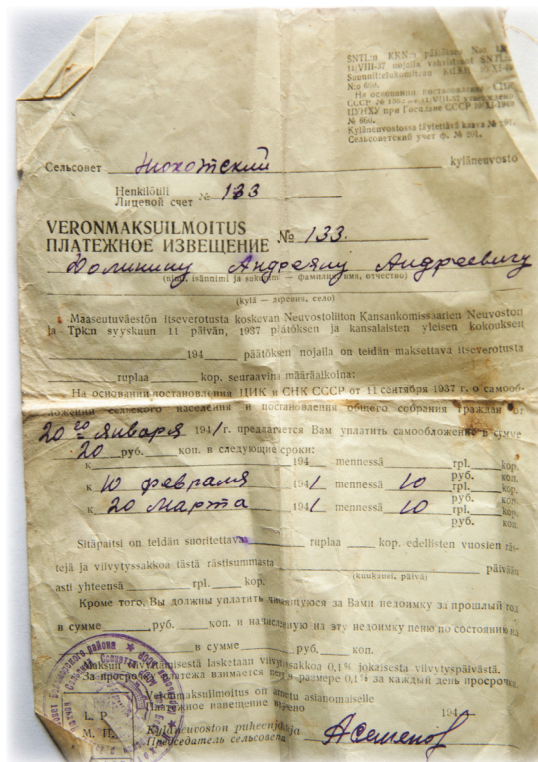 SNTL:n KKN:n päätöksen N:o
11/VIII-37 nojalla vahvistanut SNTL:n
Suunnittelukomitean
N:o 660.
На основании постановления СНК
СССР № от 11/VIII-37 утверждено
ЦУНХУ при Госплане СССР
№ 660.
Kyläneuvostossa täytettävä kaava № 291.
Сельсоветский учет ф. № 291.
Сельсовет kyläneuvosto
Henkilötili
Лицевой счет № 133
VERONMAKSUILMOITUS
ПЛАТЕЖНОЕ ИЗВЕЩЕНИЕ № 133.
Долинину Андреяну Андреевичу
(nimi, isännimi ja sukunimi — фамилия, имя, отчество)
(kylä — деревня, село)
Maaseutuväestön itseverotusta koskevan Neuvostoliiton Kansankomissaarien Neuvoston
ja Tpk:n syyskuun 11 päivän, 1937 päätöksen ja kansalaisten yleisen kokouksen
194 päätöksen nojalla on teidän maksettava itseverotusta
ruplaa kop. seuraavina määräaikoina:
На основании постановления ЦИК и СНК СССР от 11 сентября 1937 г. о самооб-
ложении сельского населения и постановления общего собрания граждан от
20го Января 1941г. предлагается Вам уплатить самообложение в сумме
20 руб. коп. в следующие сроки:
к 194 mennessä rpl. кор.
руб. коп.
к 10 февраля 1941 mennessä 10 rpl. кор.
руб. коп.
к 20 Марта 1941 mennessä 10 rpl. кор.
руб. коп.
Sitäpaitsi on teidän suoritettava ruplaa kop. edellisten vuosien räs-
tejä ja viivytyssakkoa tästä rästisummasta päivään
(kuukausi, päivä)
asti yhteensä rpl. kop.
Кроме того, Вы должны уплатить числящуюся за Вами недоимку за прошлый год
в сумме руб. коп. и начисленную на эту недоимку пеню по состоянию на
в сумме руб. коп.
Maksun viivyttämisestä lasketaan viivytyssakkoa 0,1% jokaisesta viivytyspäivästä.
За просрочку платежа взимается пеня в размере 0,1% за каждый день просрочки.
Veronmaksuilmoitus on annettu asianomaiselle
Платежное извещение вручено 194
L. P.
М. П.
Kyläneuvoston puheenjohtaja
Председатель сельсовета АСеменов